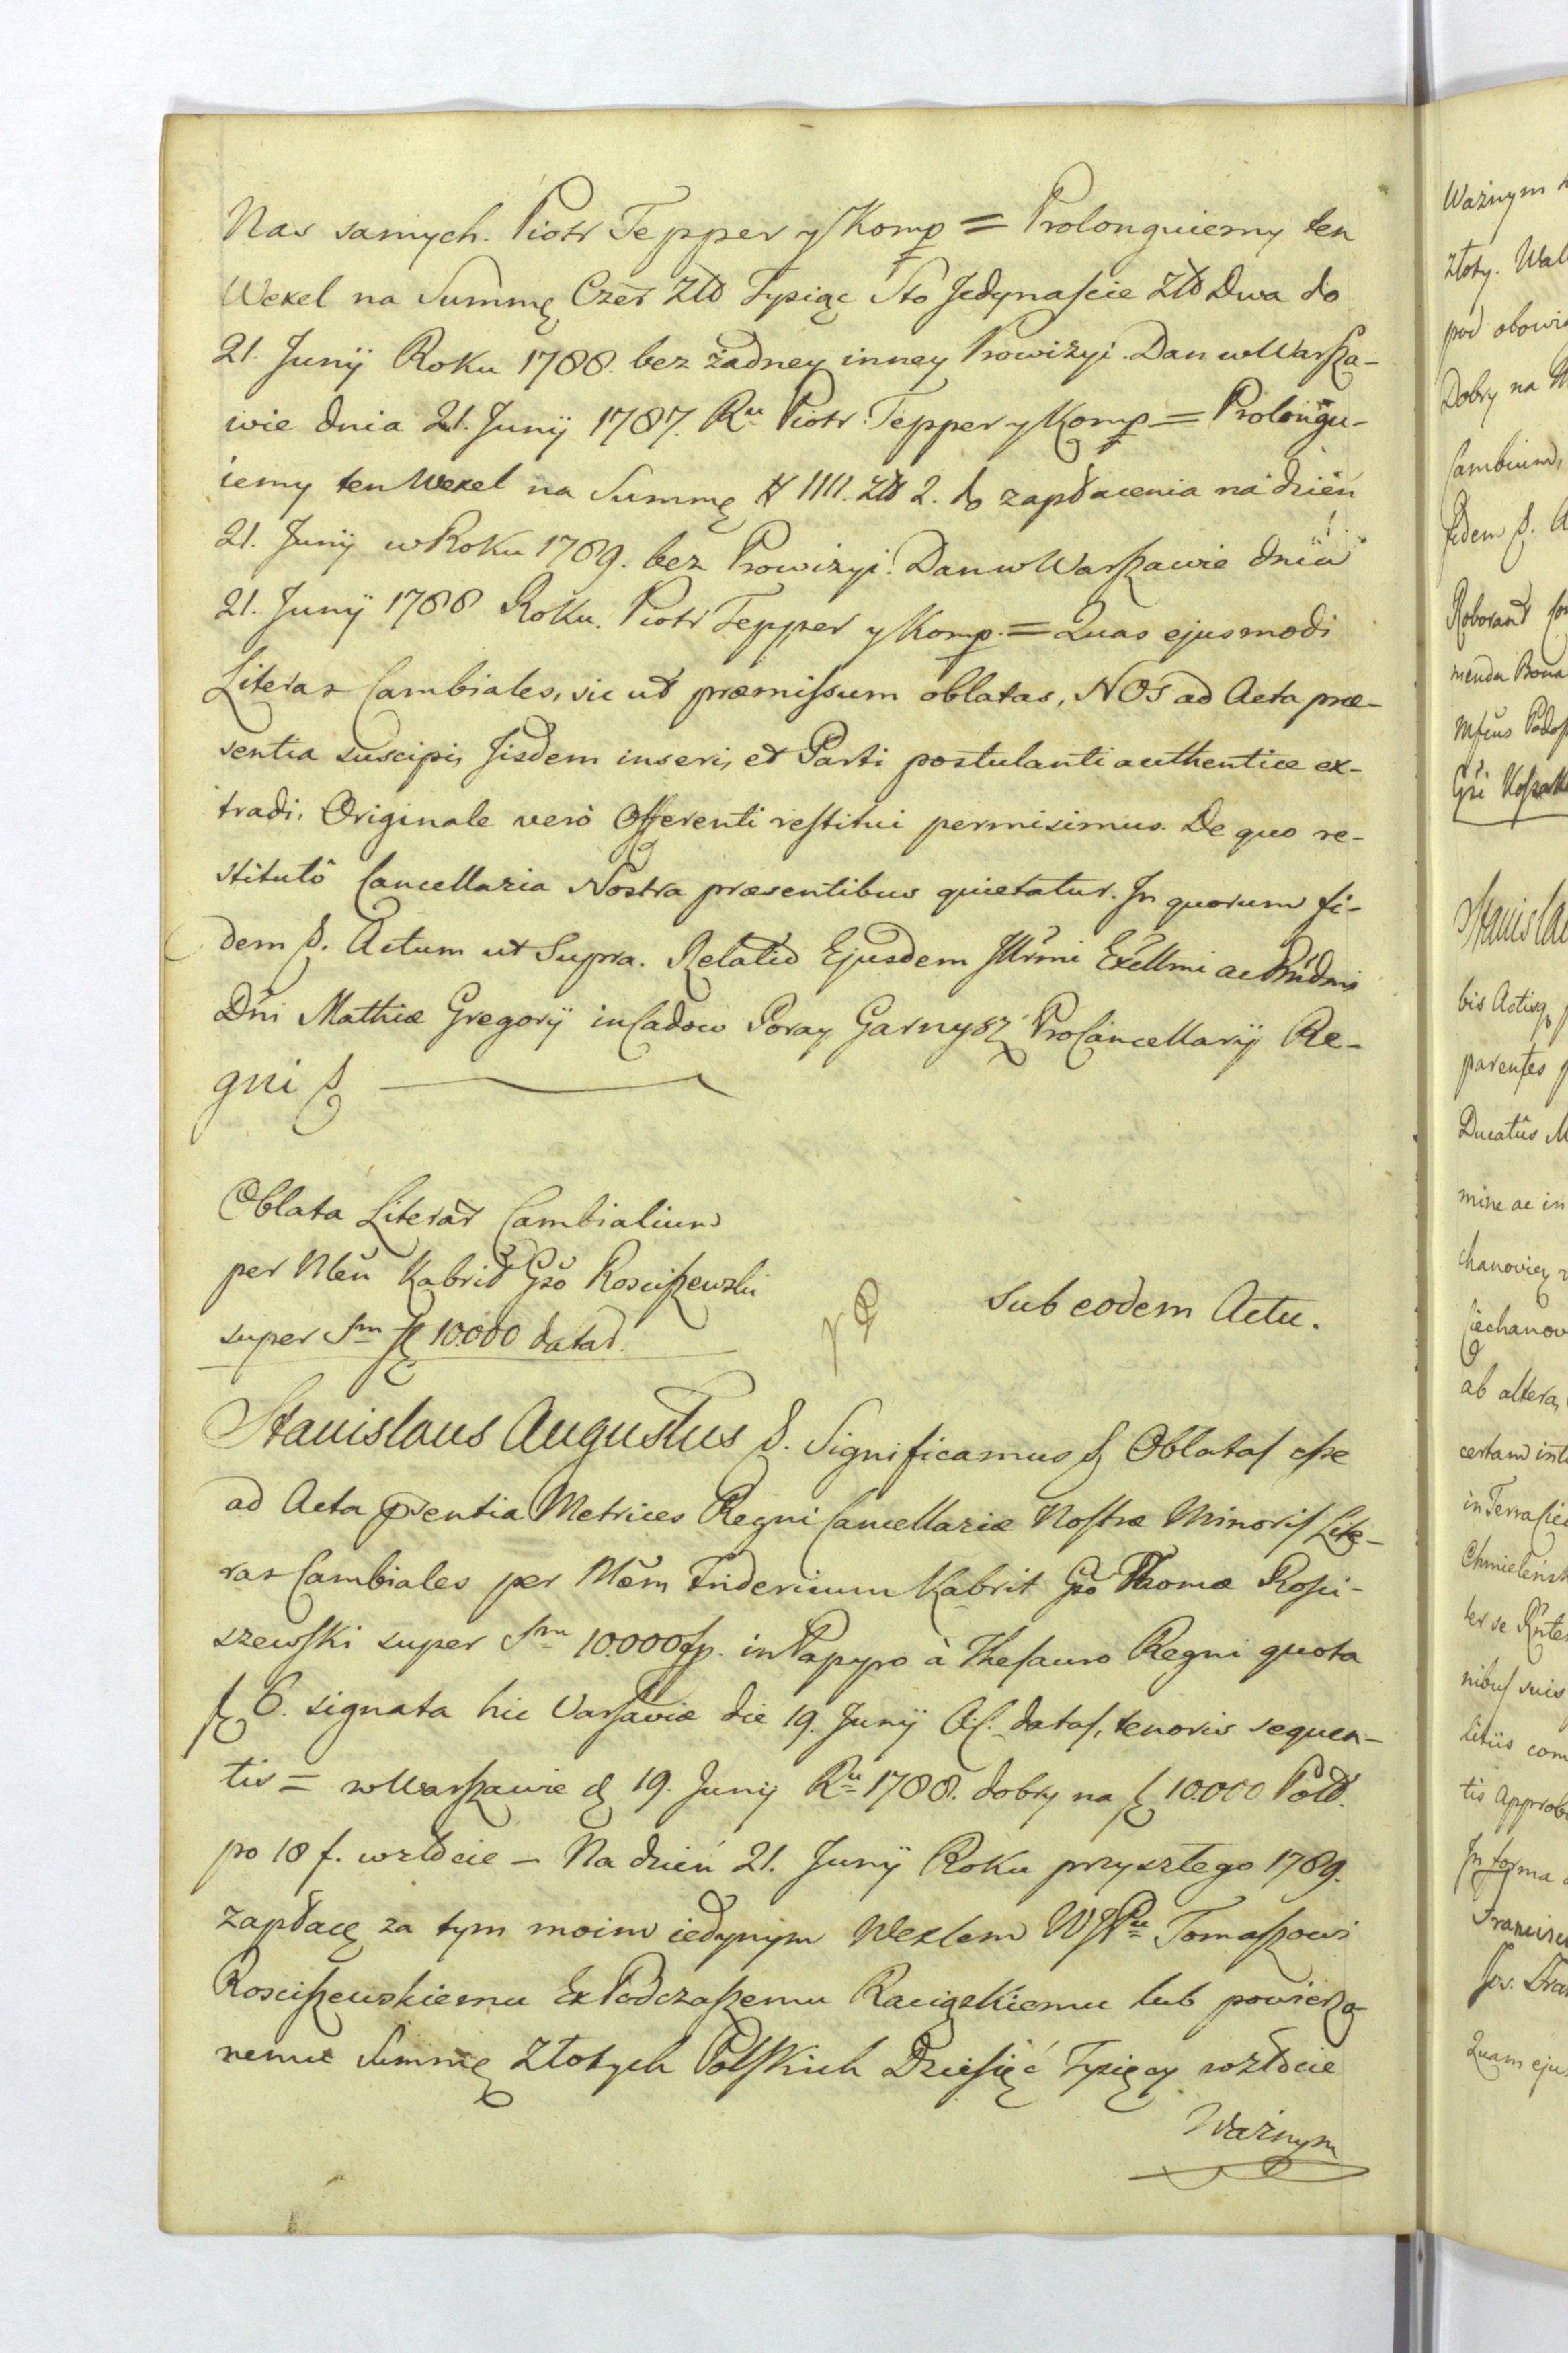 Nas samych. Piotr Tepper y Komp = Prolonguiemy ten
Wexel na Summę Czer Złł Tysiąc Sto Jedynaście Złł Dwa do
21. Junÿ Roku 1788. bez żadney inney Prowizyi. Dan w Warsza-
wie dnia 21. Junÿ 1787. Ru Piotr Tepper y Komp = Prolongu-
iemy ten Wexel na Summę # 1111. Złł 2. do zapłacenia na dzień
21. Junÿ w Roku 1789. bez Prowizyi. Dan w Warszawie dnia
21. Junÿ 1788 Roku. Piotr Tepper y Komp. = Quas ejusmodi
Literas Cambiales, sic ut præmissum oblatas, NOS ad Acta præ-
sentia suscipi, Jisdem inseri, et Parti postulanti authentice ex-
tradi. Originale verò Offerenti restitui permisimus. De quo re-
stitutô Cancellaria Nostra præsentibus quietatur. In quorum fi-
dem &. Actum ut Supra. Relatio Ejusdem Jllrmi Excllmi ac Rndmi
Dni Mathiæ Gregorÿ in Cadow Poray Garnysz ProCancellarÿ Re-
gni &
Oblata Literar Cambialium
per Nlem Kabrit Gso Rosciszewski
super Sm fl 10.000 datar.
Sub eodem Actu.
Stanislaus Augustus &. Significamus & Oblatas esse
ad Acta prentia Metrices Regni Cancellariæ Nostræ Minoris Lite-
ras Cambiales per Nlem Fridericum Kabrit Gso Thomæ Rosci-
szewski super Sm 10.000 fp. in Papyro à Thesauro Regni quota
fl 6. signata hic Varsaviæ die 19. Junÿ A.C. datas, tenoris sequen-
tis = w Warszawie d 19. Junÿ Ru 1788. dobry na f 10.000 Poll.
po 18 f. w złocie – Na dzień 21. Junÿ Roku przyszłego 1789.
zapłacę za tym moim iedynym Wexlem WJPu Tomaszowi
Rosciszewskiemu Ex Podczaszemu Raciąskiemu lub powierzo
nemu Summę Złotych Polskich Dziesięć Tysięcy w złocie
Ważnym
Ważnym
złoty.
pod
Dobry na
Cambium,
fidem &.
Roborand
Bona
bis
parentes
Ducatûs
mine ac in
ab altera,
certam
ter se
suis
com
In forma
Quam